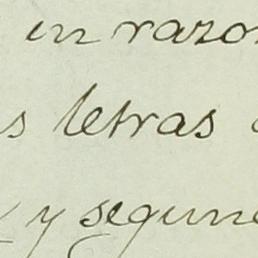 in razo
s letras
y segun